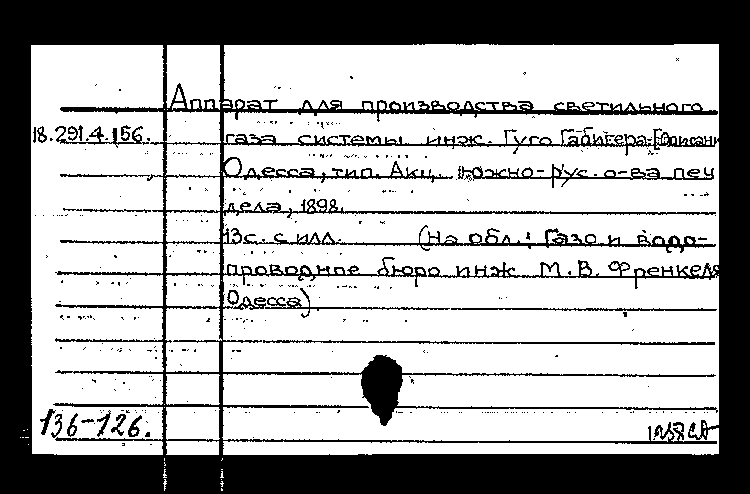 Аппарат для производства светильного
18.291.4.156. газа системы инж. Гуго Габигера. [Описани
Одесса, тип. Акц. Южно-рус. о-ва печ
дела, 1898.
13с. с илл. (На обл.: Газо и водо-
проводное бюро инж М.В. Френкеля
Одесса)
136-126.